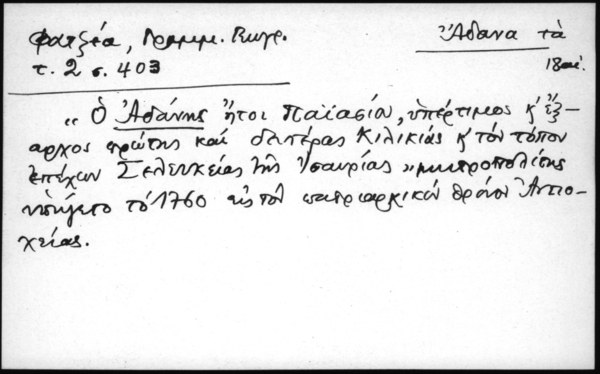 Φατζέα, Γραμμ. Γεωγρ.
τ. 2 σ. 403
Ἄδανα τὰ
18 αἰ.
"Ὁ Ἀδάνης ἤτοι Παϊασίου, ὑπέρτιμος κ' ἔξ-
αρχος πρώτης καὶ δευτέρας Κιλικίας κ' τὸν τόπον
ἐπέχων Σελευκείας τῆς Ἰσαυρίας" μητροπολίτης
ὑπήγετο τὸ 1760 εἰς τὸν πατριαρχικὸν θρόνον Ἀντιο-
χείας.